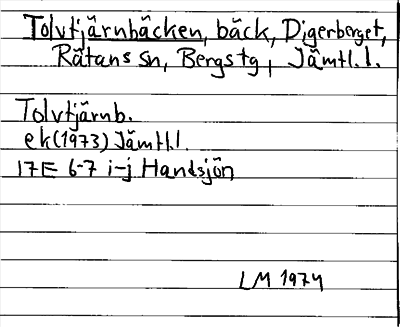 Tolvtjärnbäcken, bäck, Digerberget,
Rätans sn, Bergs tg, Jämtl. l.
Tolvtjärnb.
ek (1973) Jämtl.l.
17E 6-7 i-j Handsjön
LM 1974